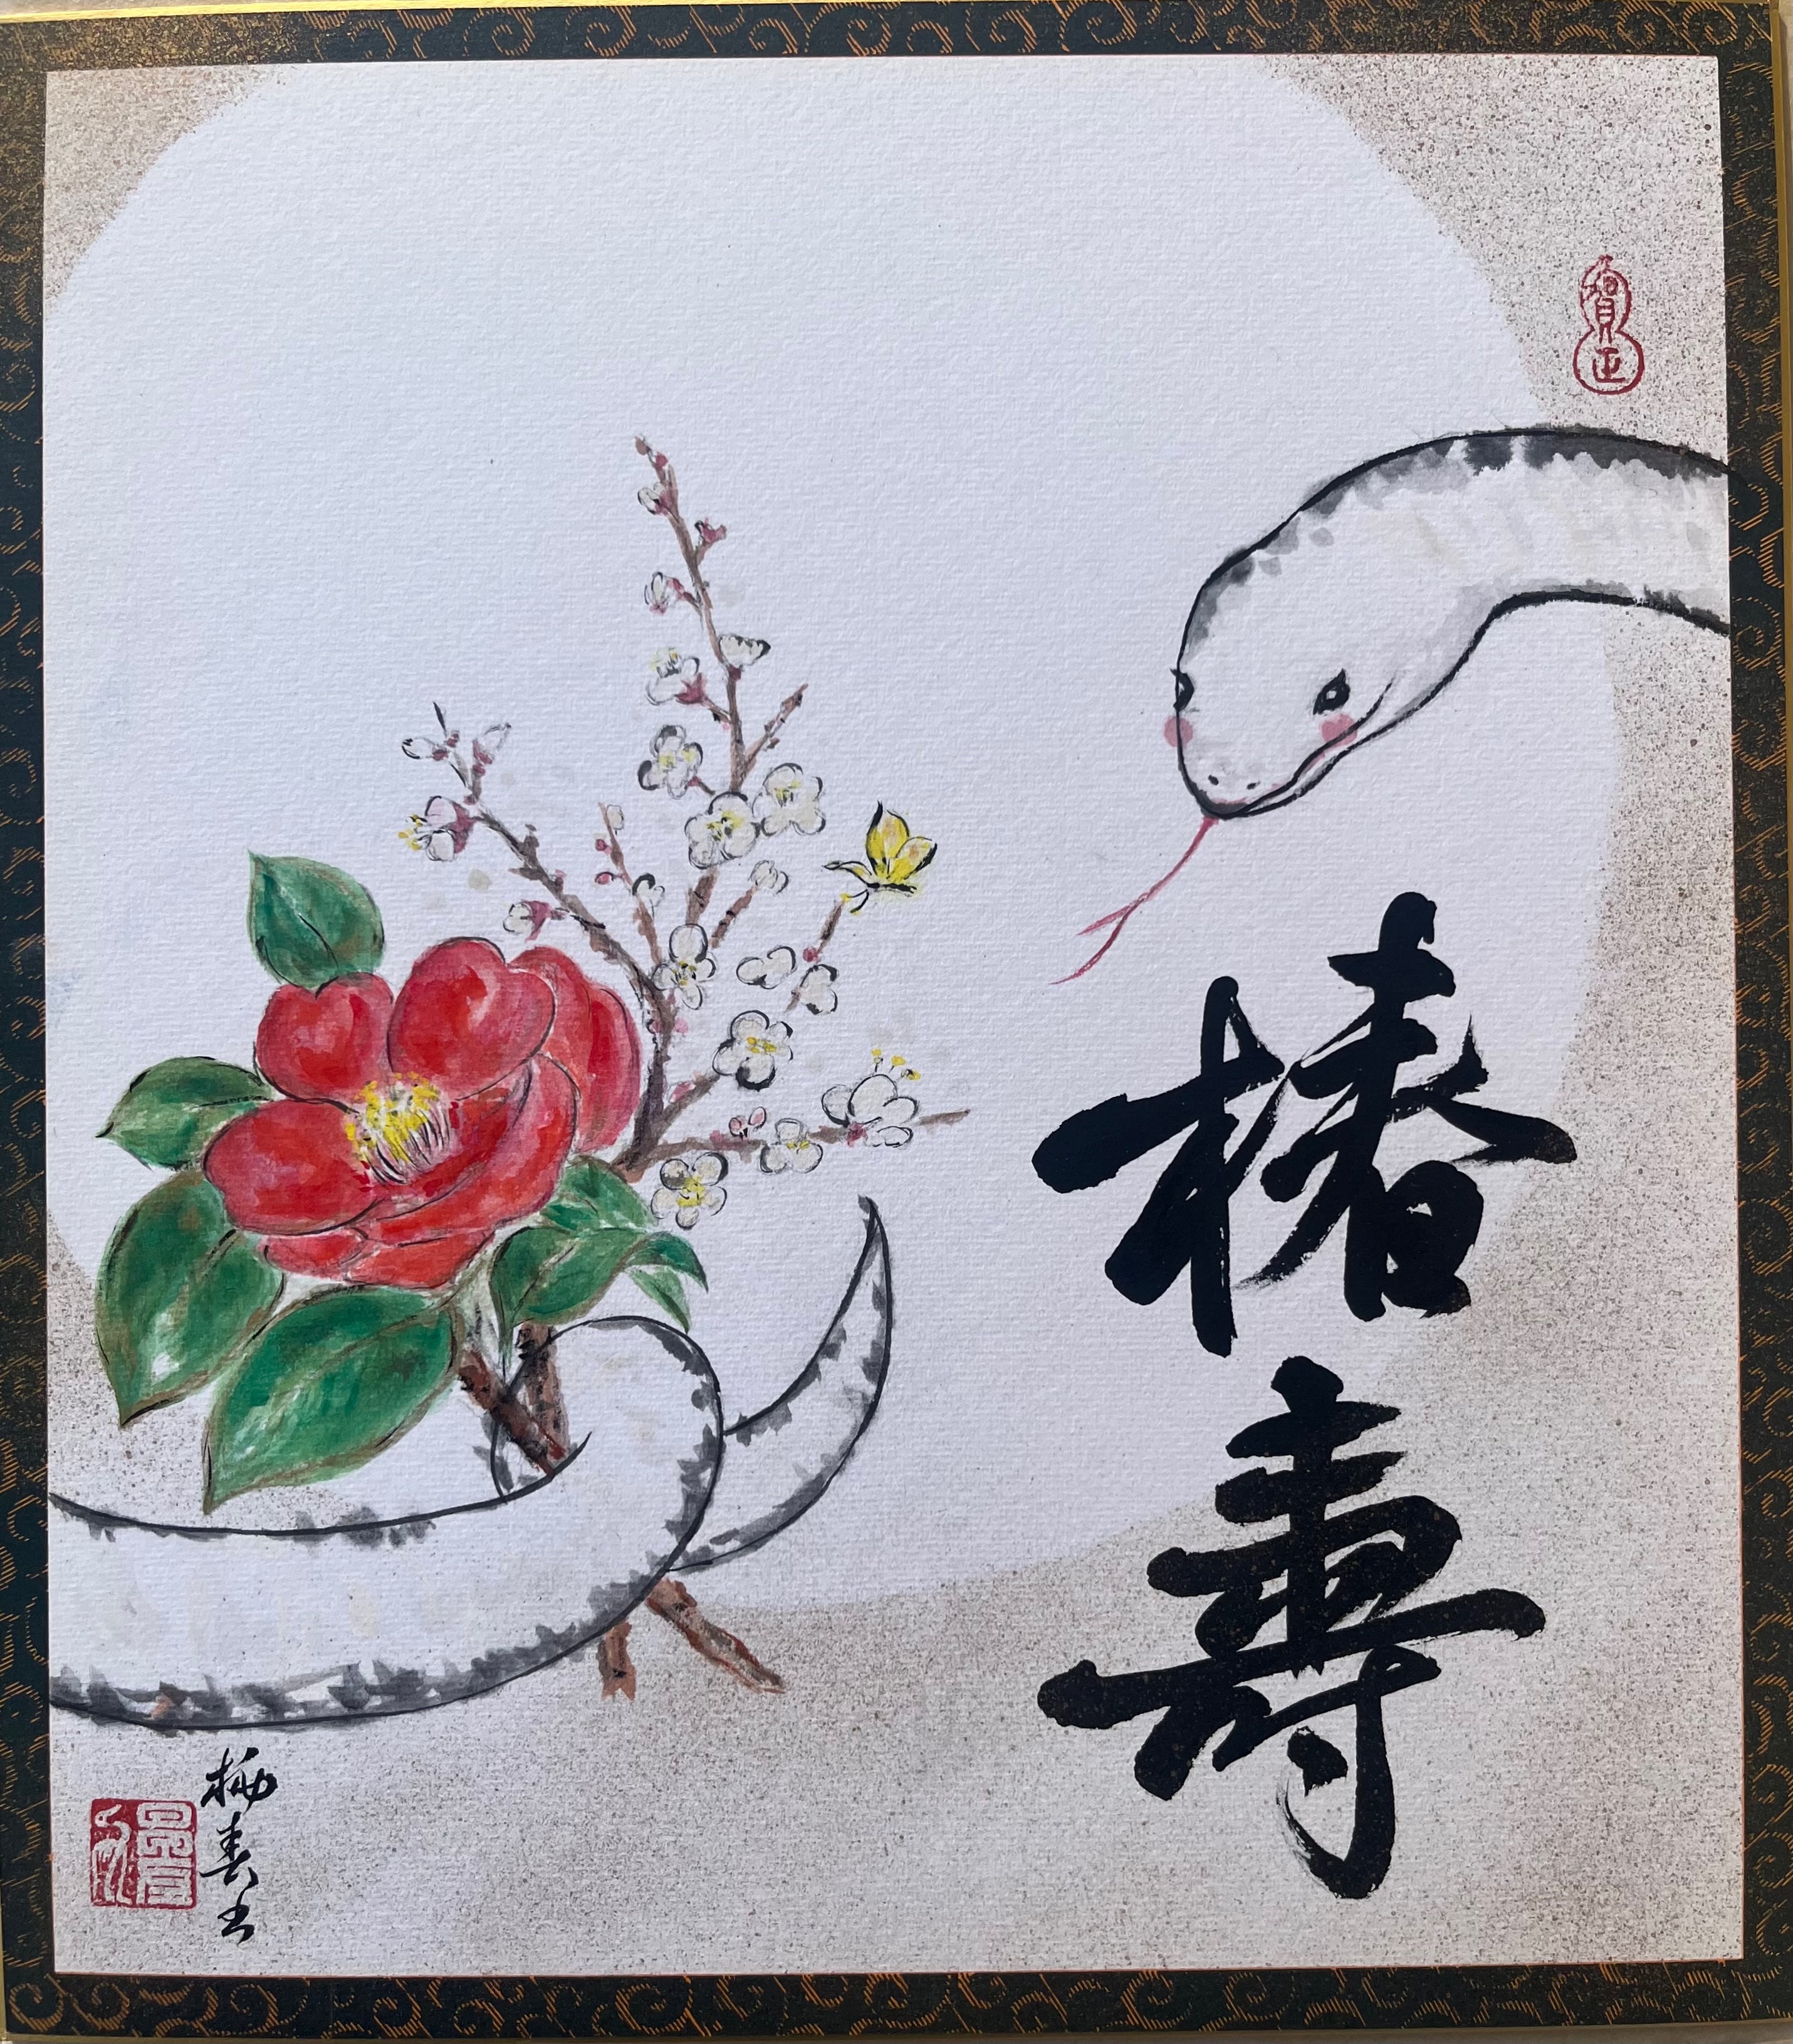 椿壽
賀正
柳春書